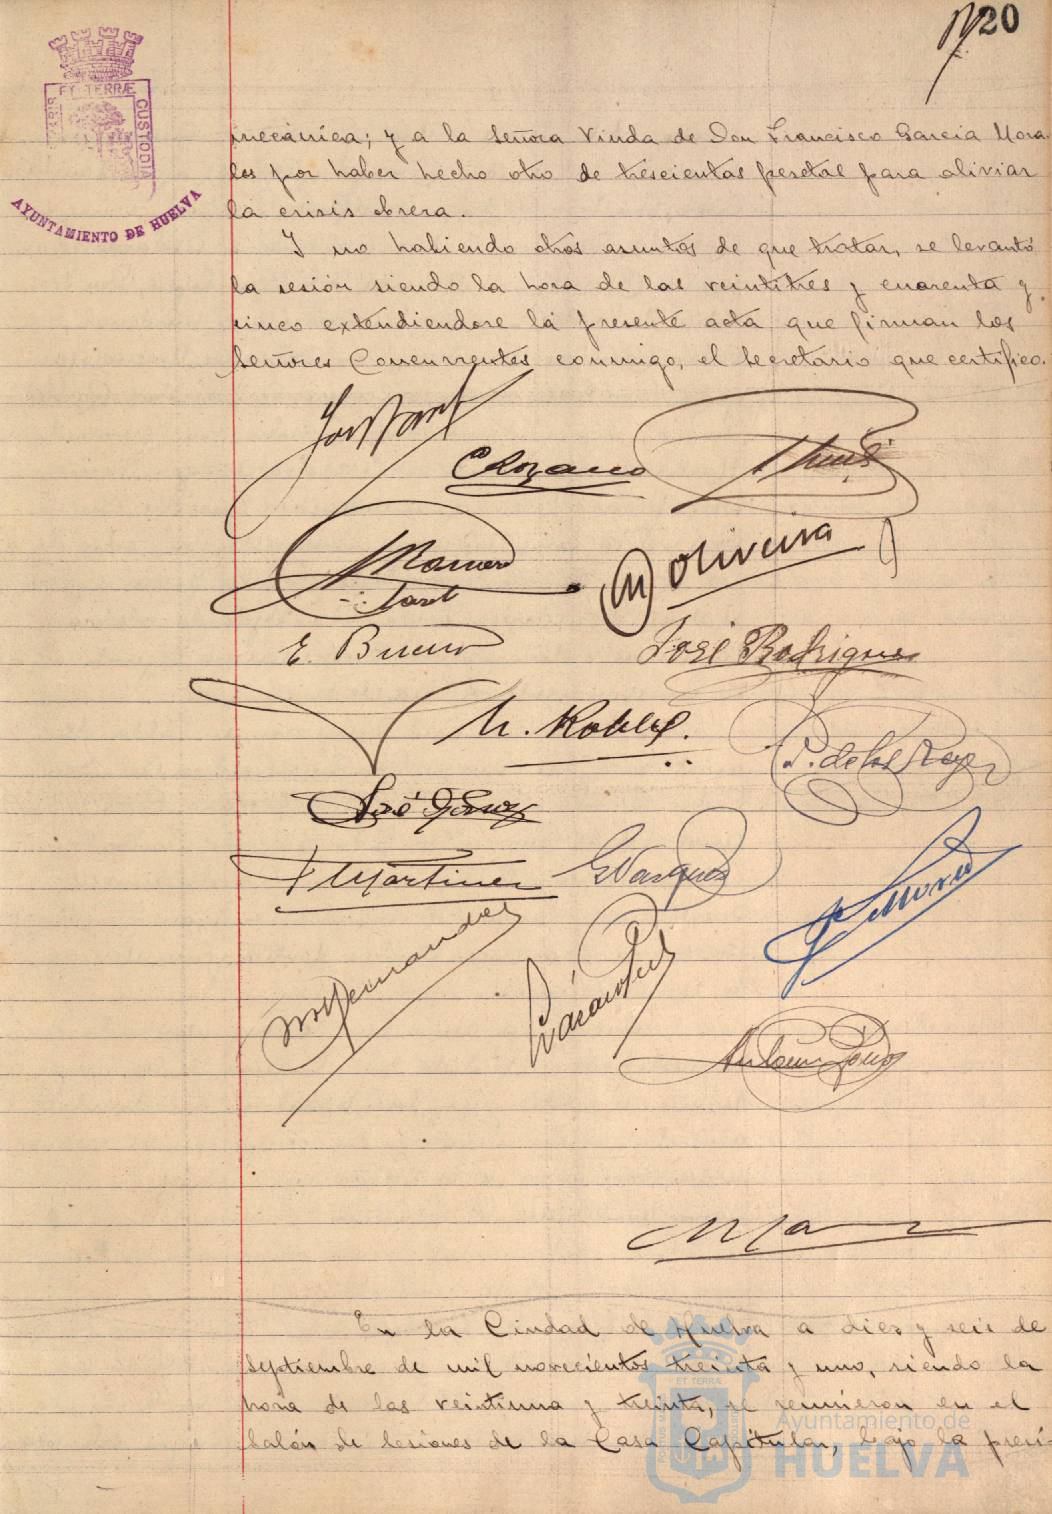 20
ET TERRÆ
CUSTODIA
AYUNTAMIENTO DE HUELVA
mecánica; y a la Señora Viuda de Don Francisco García Mora-
les por haber hecho otro de trescientas pesetas para aliviar
la crisis obrera.
Y no habiendo otros asuntos de que tratar, se levantó
la sesión siendo la hora de las veintitres y cuarenta y
cinco extendiendose la presente acta que firman los
Señores Concurrentes conmigo, el Secretario que certifico.
Lozano
Romero
M Oliveira
E. Bueno
José Rodriguez
M. Robles.
P. de los Reyes
José Gómez
F Martinez
E Vazquez
M Hernandez
Antonio
En la Ciudad de Huelva a diez y seis de
septiembre de mil novecientos treinta y uno, siendo la
hora de las veintiuna y treinta, se reunieron en el
Salón de Sesiones de la Casa Capitular, bajo la presi-
Ayuntamiento de
HUELVA